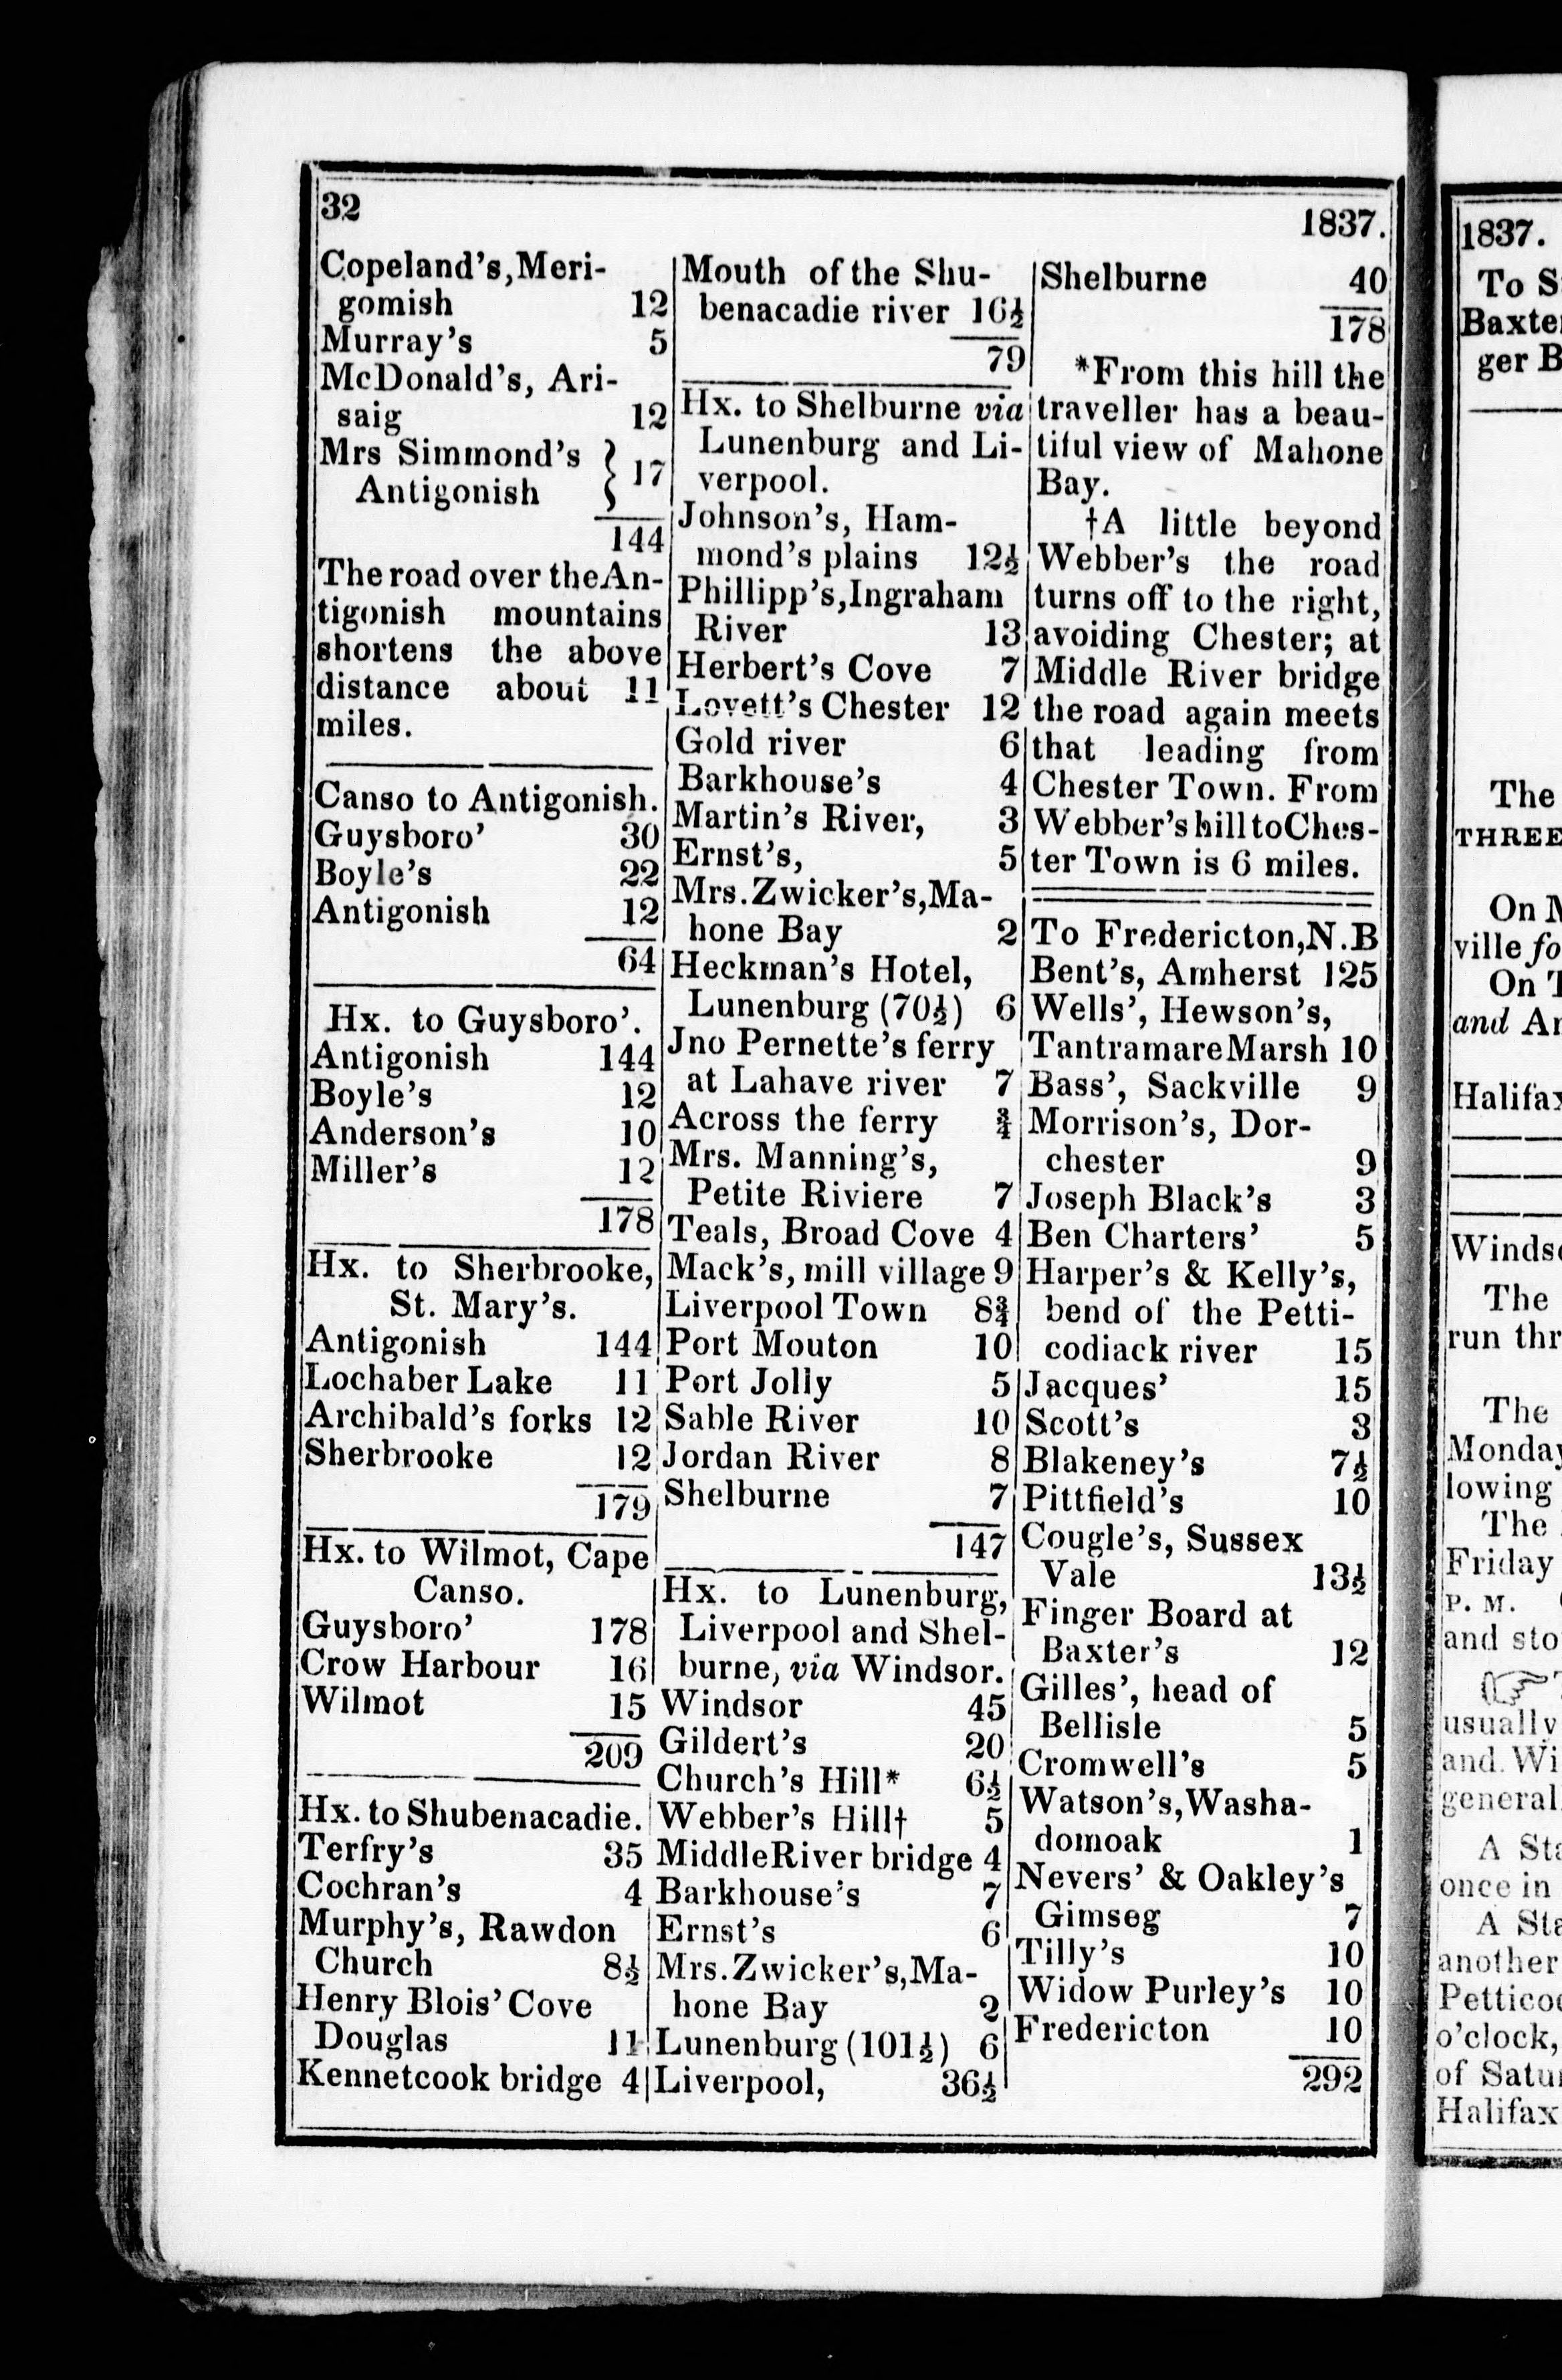 32
1837.
Copeland's, Meri-
gomish 12
Murray's 5
McDonald's, Ari-
saig 12
Mrs Simmond's
Antigonish } 17
144
The road over the An-
tigonish mountains
shortens the above
distance about 11
miles.
Canso to Antigonish.
Guysboro' 30
Boyle's 22
Antigonish 12
64
Hx. to Guysboro'.
Antigonish 144
Boyle's 12
Anderson's 10
Miller's 12
178
Hx. to Sherbrooke,
St. Mary's.
Antigonish 144
Lochaber Lake 11
Archibald's forks 12
Sherbrooke 12
179
Hx. to Wilmot, Cape
Canso.
Guysboro' 178
Crow Harbour 16
Wilmot 15
209
Hx. to Shubenacadie.
Terfry's 35
Cochran's 4
Murphy's, Rawdon
Church 8½
Henry Blois' Cove
Douglas 11
Kennetcook bridge 4
Mouth of the Shu-
benacadie river 16½
79
Hx. to Shelburne via
Lunenburg and Li-
verpool.
Johnson's, Ham-
mond's plains 12½
Phillipp's, Ingraham
River 13
Herbert's Cove 7
Lovett's Chester 12
Gold river 6
Barkhouse's 4
Martin's River, 3
Ernst's, 5
Mrs. Zwicker's, Ma-
hone Bay 2
Heckman's Hotel,
Lunenburg (70½) 6
Jno Pernette's ferry
at Lahave river 7
Across the ferry ¾
Mrs. Manning's,
Petite Riviere 7
Teals, Broad Cove 4
Mack's, mill village 9
Liverpool Town 8¾
Port Mouton 10
Port Jolly 5
Sable River 10
Jordan River 8
Shelburne 7
147
Hx. to Lunenburg,
Liverpool and Shel-
burne, via Windsor.
Windsor 45
Gildert's 20
Church's Hill* 6½
Webber's Hill† 5
Middle River bridge 4
Barkhouse's 7
Ernst's 6
Mrs. Zwicker's, Ma-
hone Bay 2
Lunenburg (101½) 6
Liverpool, 36½
Shelburne 40
178
*From this hill the
traveller has a beau-
tiful view of Mahone
Bay.
†A little beyond
Webber's the road
turns off to the right,
avoiding Chester; at
Middle River bridge
the road again meets
that leading from
Chester Town. From
Webber's hill to Ches-
ter Town is 6 miles.
To Fredericton, N.B
Bent's, Amherst 125
Wells', Hewson's,
Tantramare Marsh 10
Bass', Sackville 9
Morrison's, Dor-
chester 9
Joseph Black's 3
Ben Charters' 5
Harper's & Kelly's,
bend of the Petti-
codiack river 15
Jacques' 15
Scott's 3
Blakeney's 7½
Pittfield's 10
Cougle's, Sussex
Vale 13½
Finger Board at
Baxter's 12
Gilles', head of
Bellisle 5
Cromwell's 5
Watson's, Washa-
domoak 1
Nevers' & Oakley's
Gimseg 7
Tilly's 10
Widow Purley's 10
Fredericton 10
292
1837.
To S
Baxter
ger B
The
THREE
On
ville fo
On
and
Halifax
Windso
The
run thr
The
Monday
lowing
The
Friday
P. M.
and sto
usually
and Wi
general
A Sta
once in
A Sta
another
Petticod
o'clock,
of Satur
Halifax